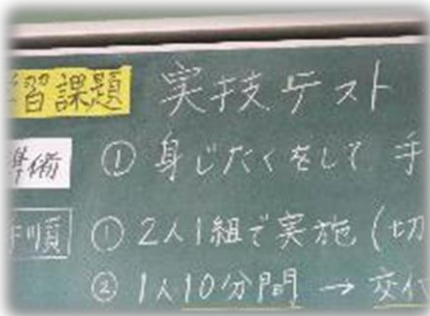 習課題 実技テスト
準備 ① 身じたくをして 手
手順 ① 2人1組で実施 (切
② 1人10分間 → 交代